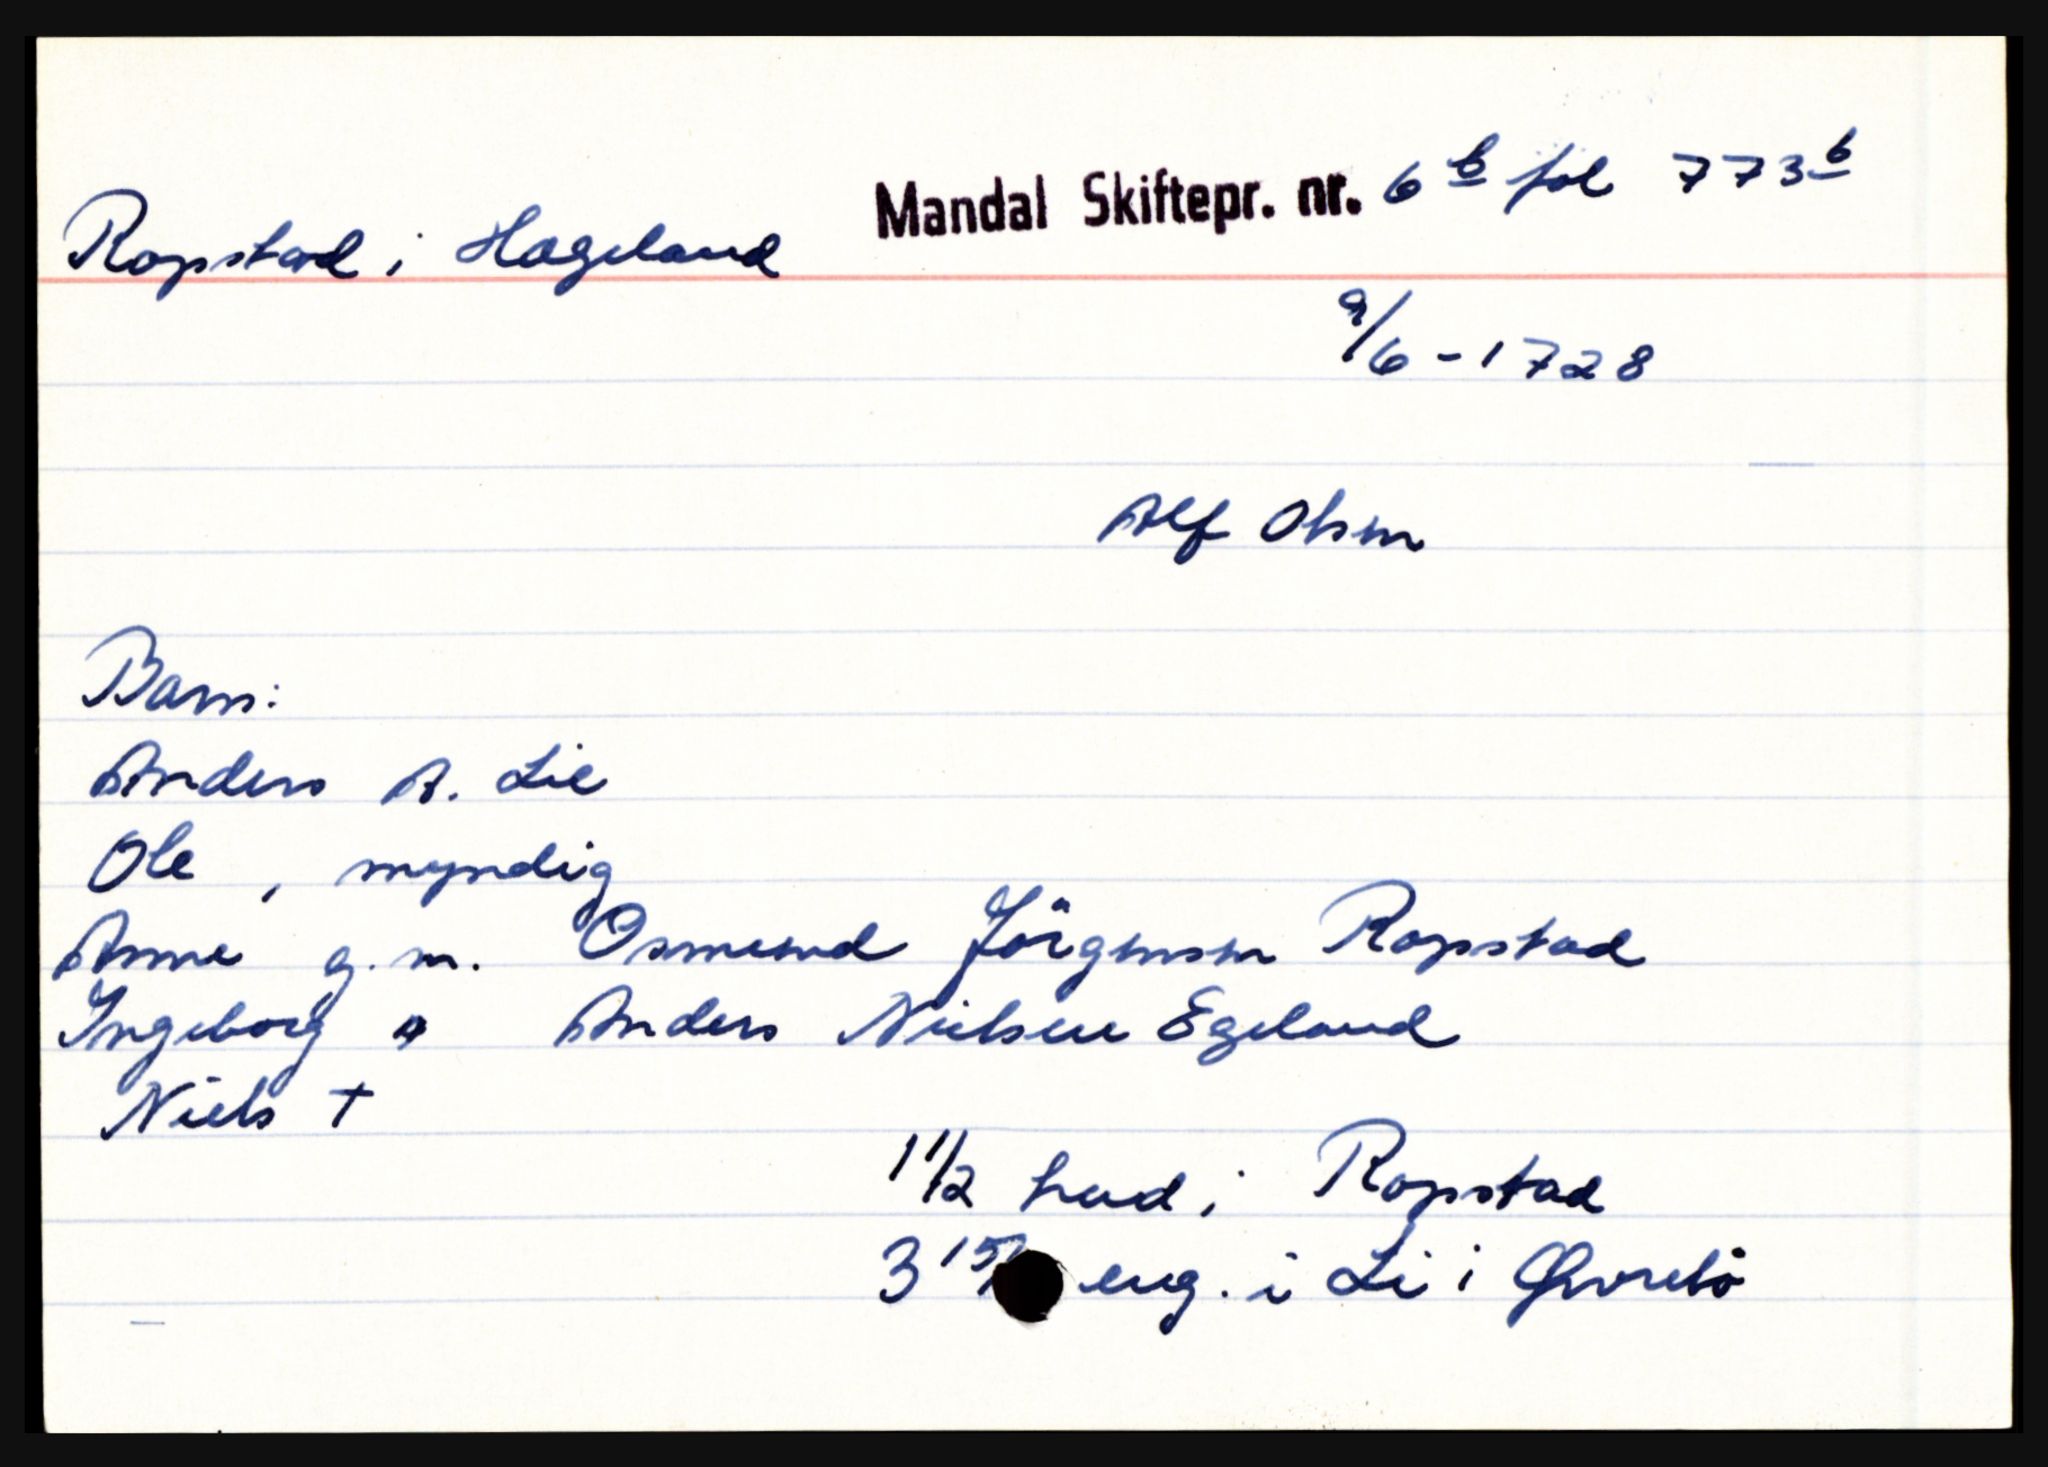 Mandal Skiftepr. nr. 6 b fol 773 b
Ropstad i Hægeland
9/6 - 1728
Alf Olsen
Barn:
Anders A. Lie
Ole , myndig
Anne g. m. Osmund Jörgensen Ropstad
Ingeborg " Anders Nielsen Egeland
Niels †
1 1/2 hud i Ropstad
3 15/ eng. i Li i Øvrebö